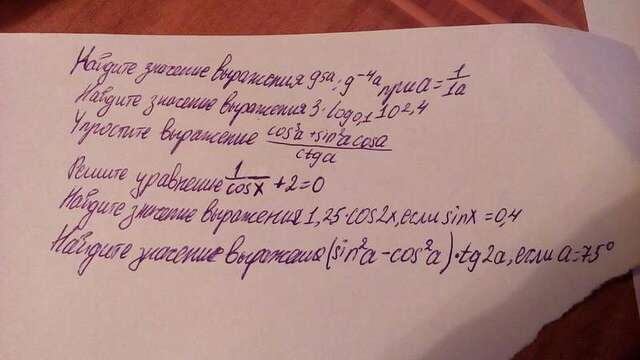 Найдите значение выражения 9^5a : 9^-4a при a = 1/1a
Найдите значение выражения 3·log0,1 10^2,4
Упростите выражение (cos³a + sin²a cosa)/ctga
Решите уравнение 1/cosx + 2 = 0
Найдите значение выражения 1,25·cos2x, если sinx = 0,4
Найдите значение выражено (sin²a - cos²a)·tg2a, если a = 75°